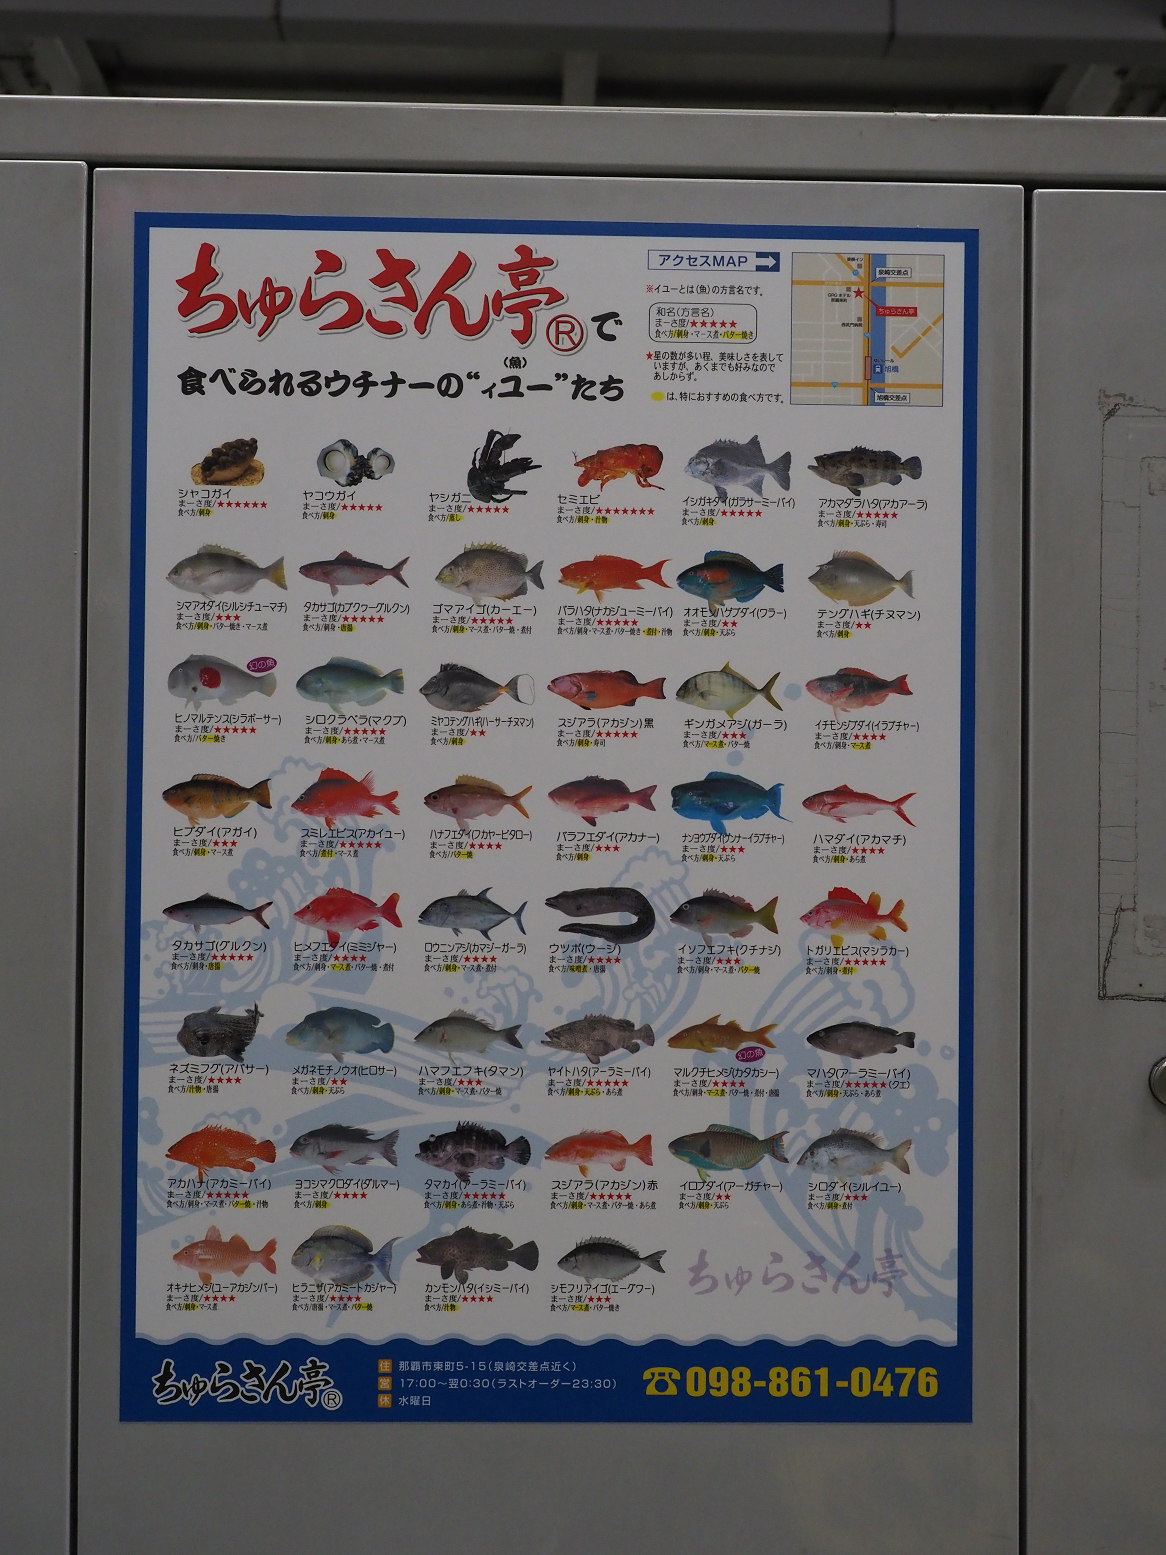 ちゅらさん亭®で
(魚)
食べられるウチナーの“ィユー”たち
アクセスMAP
※イユーとは(魚)の方言名です。
和名(方言名)
まーさ度/★★★★★
食べ方/刺身・マース煮・バター焼き
★星の数が多い程、美味しさを表して
いますが、あくまでも好みなので
あしからず。
は、特におすすめの食べ方です。
泉崎交差点
ちゅらさん亭
旭橋
旭橋交差点
シャコガイ
まーさ度/★★★★★★
食べ方/刺身
ヤコウガイ
まーさ度/★★★★★
食べ方/刺身
ヤシガニ
まーさ度/★★★★★
食べ方/蒸し
セミエビ
まーさ度/★★★★★★★
食べ方/刺身・汁物
イシガキダイ(ガラサーミーバイ)
まーさ度/★★★★★
食べ方/刺身
アカマダラハタ(アカアーラ)
まーさ度/★★★★★
食べ方/刺身・天ぷら・寿司
シマアオダイ(シルシチューマチ)
まーさ度/★★★
食べ方/刺身・バター焼き・マース煮
タカサゴ(カブクヮーグルクン)
まーさ度/★★★★★
食べ方/刺身・唐揚
ゴマアイゴ(カーエー)
まーさ度/★★★★★
食べ方/刺身・マース煮・バター焼・煮付
バラハタ(ナカジューミーバイ)
まーさ度/★★★★★
食べ方/刺身・マース煮・バター焼き・煮付・汁物
オオモンハゲブダイ(ワラー)
まーさ度/★★
食べ方/刺身・天ぷら
テングハギ(チヌマン)
まーさ度/★★
食べ方/刺身
幻の魚
ヒノマルテンス(シラボーサー)
まーさ度/★★★★★
食べ方/バター焼き
シロクラベラ(マクブ)
まーさ度/★★★★★
食べ方/刺身・あら煮・マース煮
ミヤコテングハギ(ハーサーチヌマン)
まーさ度/★★
食べ方/刺身
スジアラ(アカジン)黒
まーさ度/★★★★★
食べ方/刺身・寿司
ギンガメアジ(ガーラ)
まーさ度/★★★
食べ方/マース煮・バター焼
イチモンジブダイ(イラブチャー)
まーさ度/★★★★
食べ方/刺身・マース煮
ヒブダイ(アガイ)
まーさ度/★★★
食べ方/刺身・マース煮
スミレエビス(アカイユー)
まーさ度/★★★★★
食べ方/煮付・マース煮
ハナフエダイ(フカヤービタロー)
まーさ度/★★★★
食べ方/バター焼
バラフエダイ(アカナー)
まーさ度/★★★
食べ方/刺身
ナンヨウブダイ(ゲンナーイラブチャー)
まーさ度/★★★
食べ方/刺身・天ぷら
ハマダイ(アカマチ)
まーさ度/★★★★
食べ方/刺身・あら煮
タカサゴ(グルクン)
まーさ度/★★★★★
食べ方/刺身・唐揚
ヒメフエダイ(ミミジャー)
まーさ度/★★★★
食べ方/刺身・マース煮・バター焼・煮付
ロウニンアジ(カマジーガーラ)
まーさ度/★★★★
食べ方/刺身・マース煮・煮付
ウツボ(ウージ)
まーさ度/★★★★
食べ方/味噌煮・唐揚
イソフエフキ(クチナジ)
まーさ度/★★★
食べ方/刺身・マース煮・バター焼
トガリエビス(マシラカー)
まーさ度/★★★★★
食べ方/刺身・煮付
ネズミフグ(アバサー)
まーさ度/★★★★
食べ方/汁物・唐揚
メガネモチノウオ(ヒロサー)
まーさ度/★★
食べ方/刺身・天ぷら
ハマフエフキ(タマン)
まーさ度/★★★
食べ方/刺身・マース煮・バター焼
ヤイトハタ(アーラミーバイ)
まーさ度/★★★★★
食べ方/刺身・天ぷら・あら煮
幻の魚
マルクチヒメジ(カタカシー)
まーさ度/★★★★
食べ方/刺身・マース煮・バター焼・煮付・唐揚
マハタ(アーラミーバイ)
まーさ度/★★★★★(クエ)
食べ方/刺身・天ぷら・あら煮
アカハナ(アカミーバイ)
まーさ度/★★★★★
食べ方/刺身・マース煮・バター焼・汁物
ヨコシマクロダイ(ダルマー)
まーさ度/★★★★
食べ方/刺身
タマカイ(アーラミーバイ)
まーさ度/★★★★★
食べ方/刺身・あら煮・汁物・天ぷら
スジアラ(アカジン)赤
まーさ度/★★★★★
食べ方/刺身・マース煮・バター焼・あら煮
イロブダイ(アーガチャー)
まーさ度/★★
食べ方/刺身・天ぷら
シロダイ(シルイユー)
まーさ度/★★★
食べ方/刺身・煮付
オキナヒメジ(ユーアカジンバー)
まーさ度/★★★★
食べ方/刺身・マース煮
ヒラニザ(アカミートカジャー)
まーさ度/★★★★
食べ方/唐揚・マース煮・バター焼
カンモンハタ(イシミーバイ)
まーさ度/★★★★
食べ方/汁物
シモフリアイゴ(エーグワー)
まーさ度/★★★
食べ方/マース煮・バター焼き
ちゅらさん亭
ちゅらさん亭®
住 那覇市東町5-15(泉崎交差点近く)
営 17:00〜翌0:30(ラストオーダー23:30)
休 水曜日
☎098-861-0476